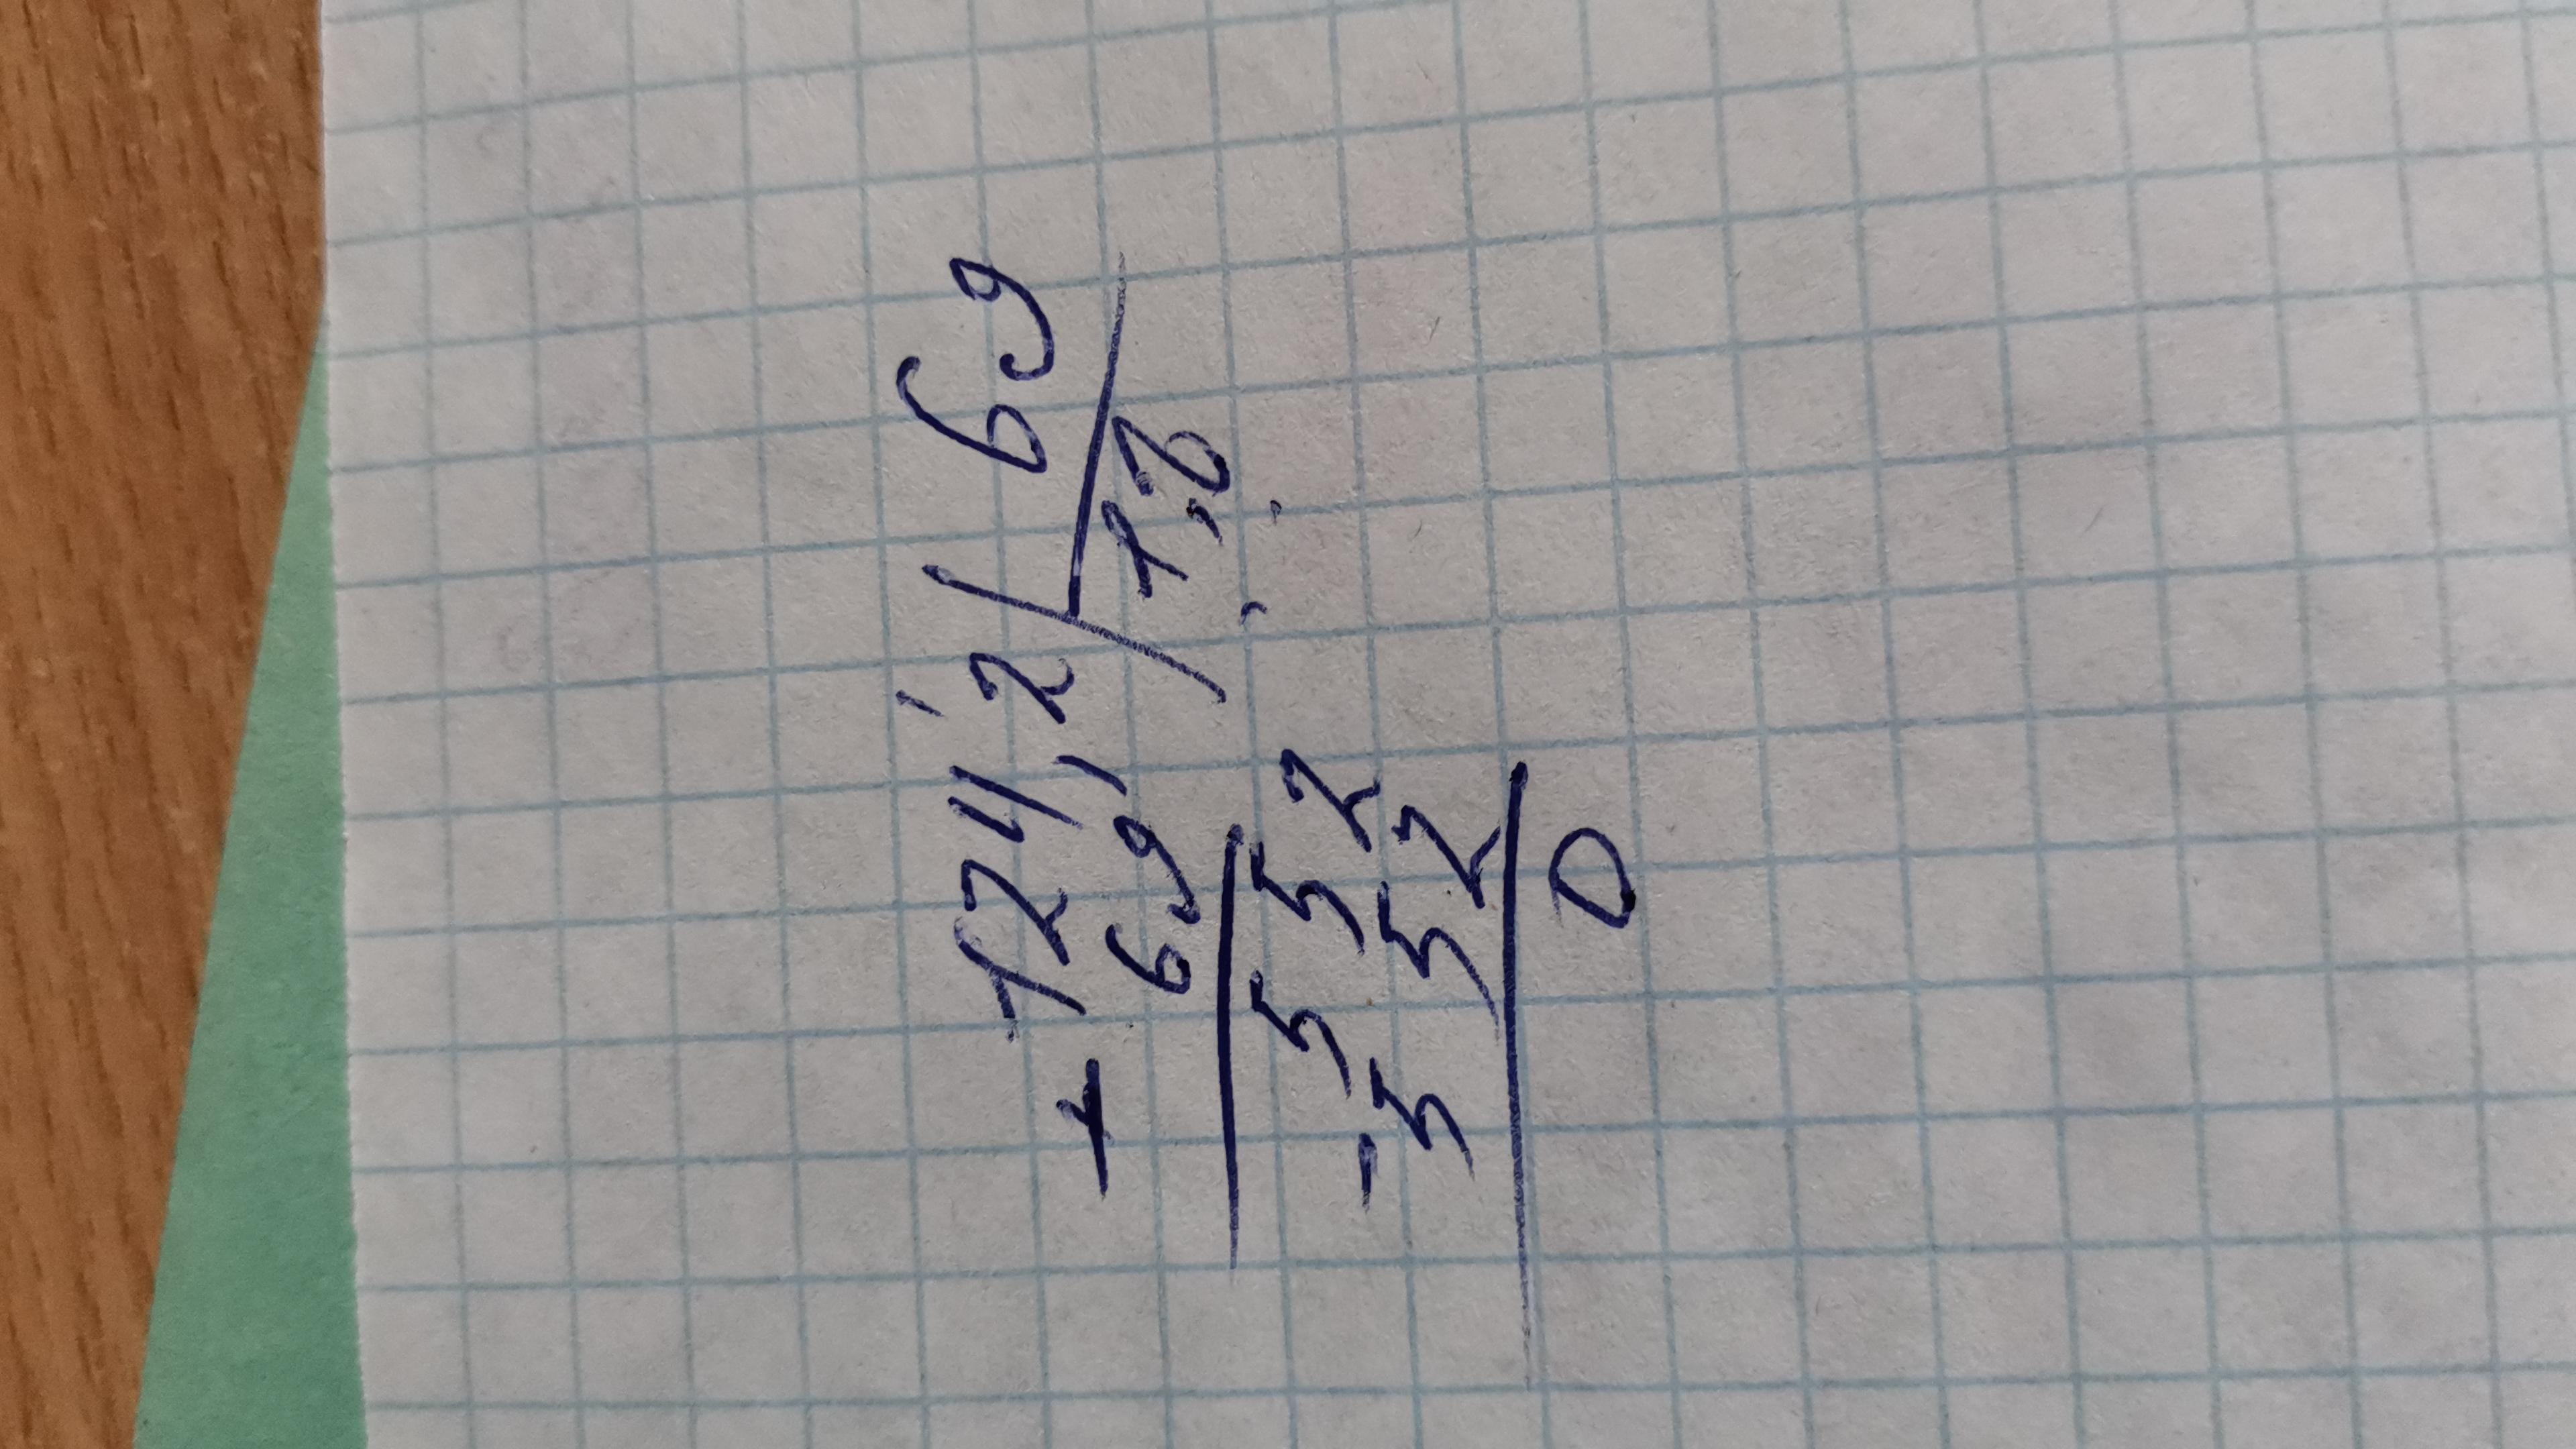 124,2 69
- 69 1,8
552
- 552
0